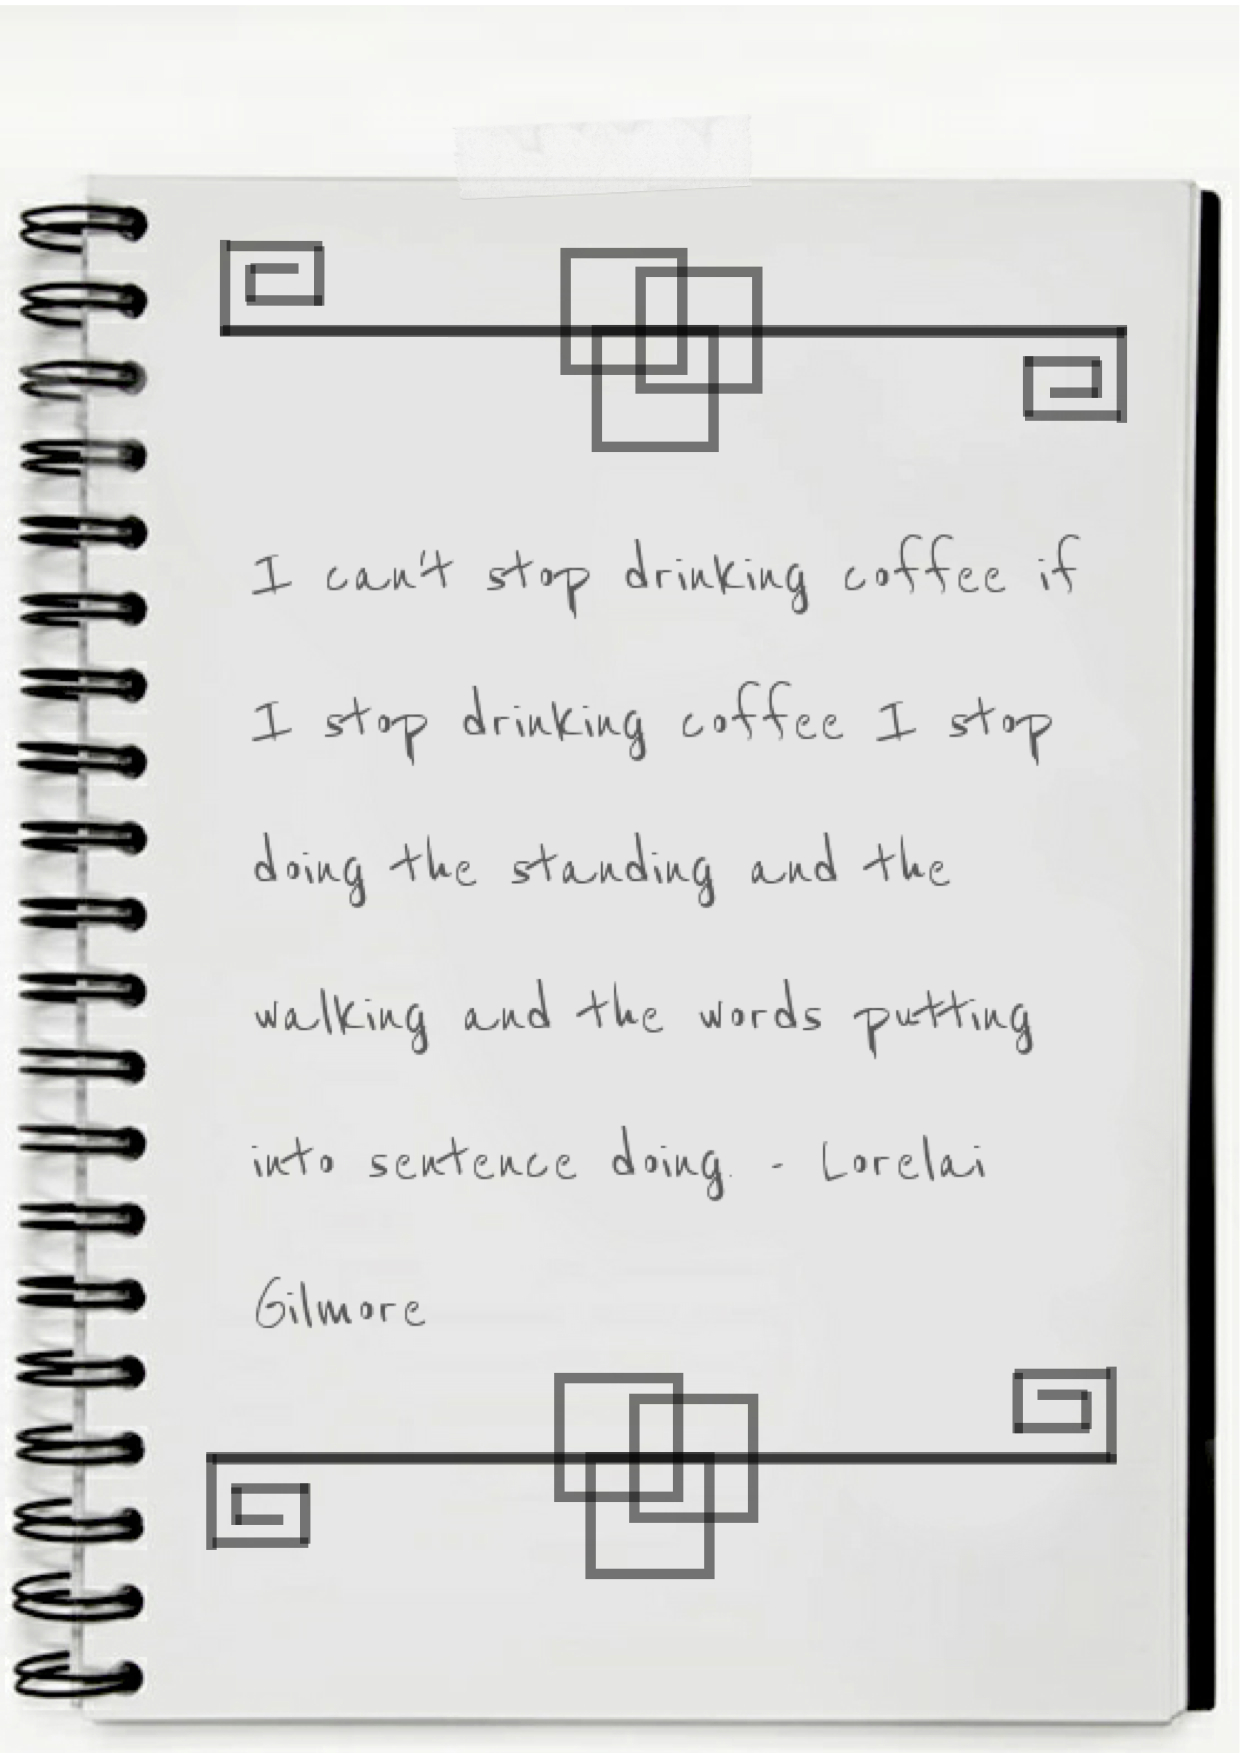 I can't stop drinking coffee if
I stop drinking coffee I stop
doing the standing and the
walking and the words putting
into sentence doing. - Lorelai
Gilmore